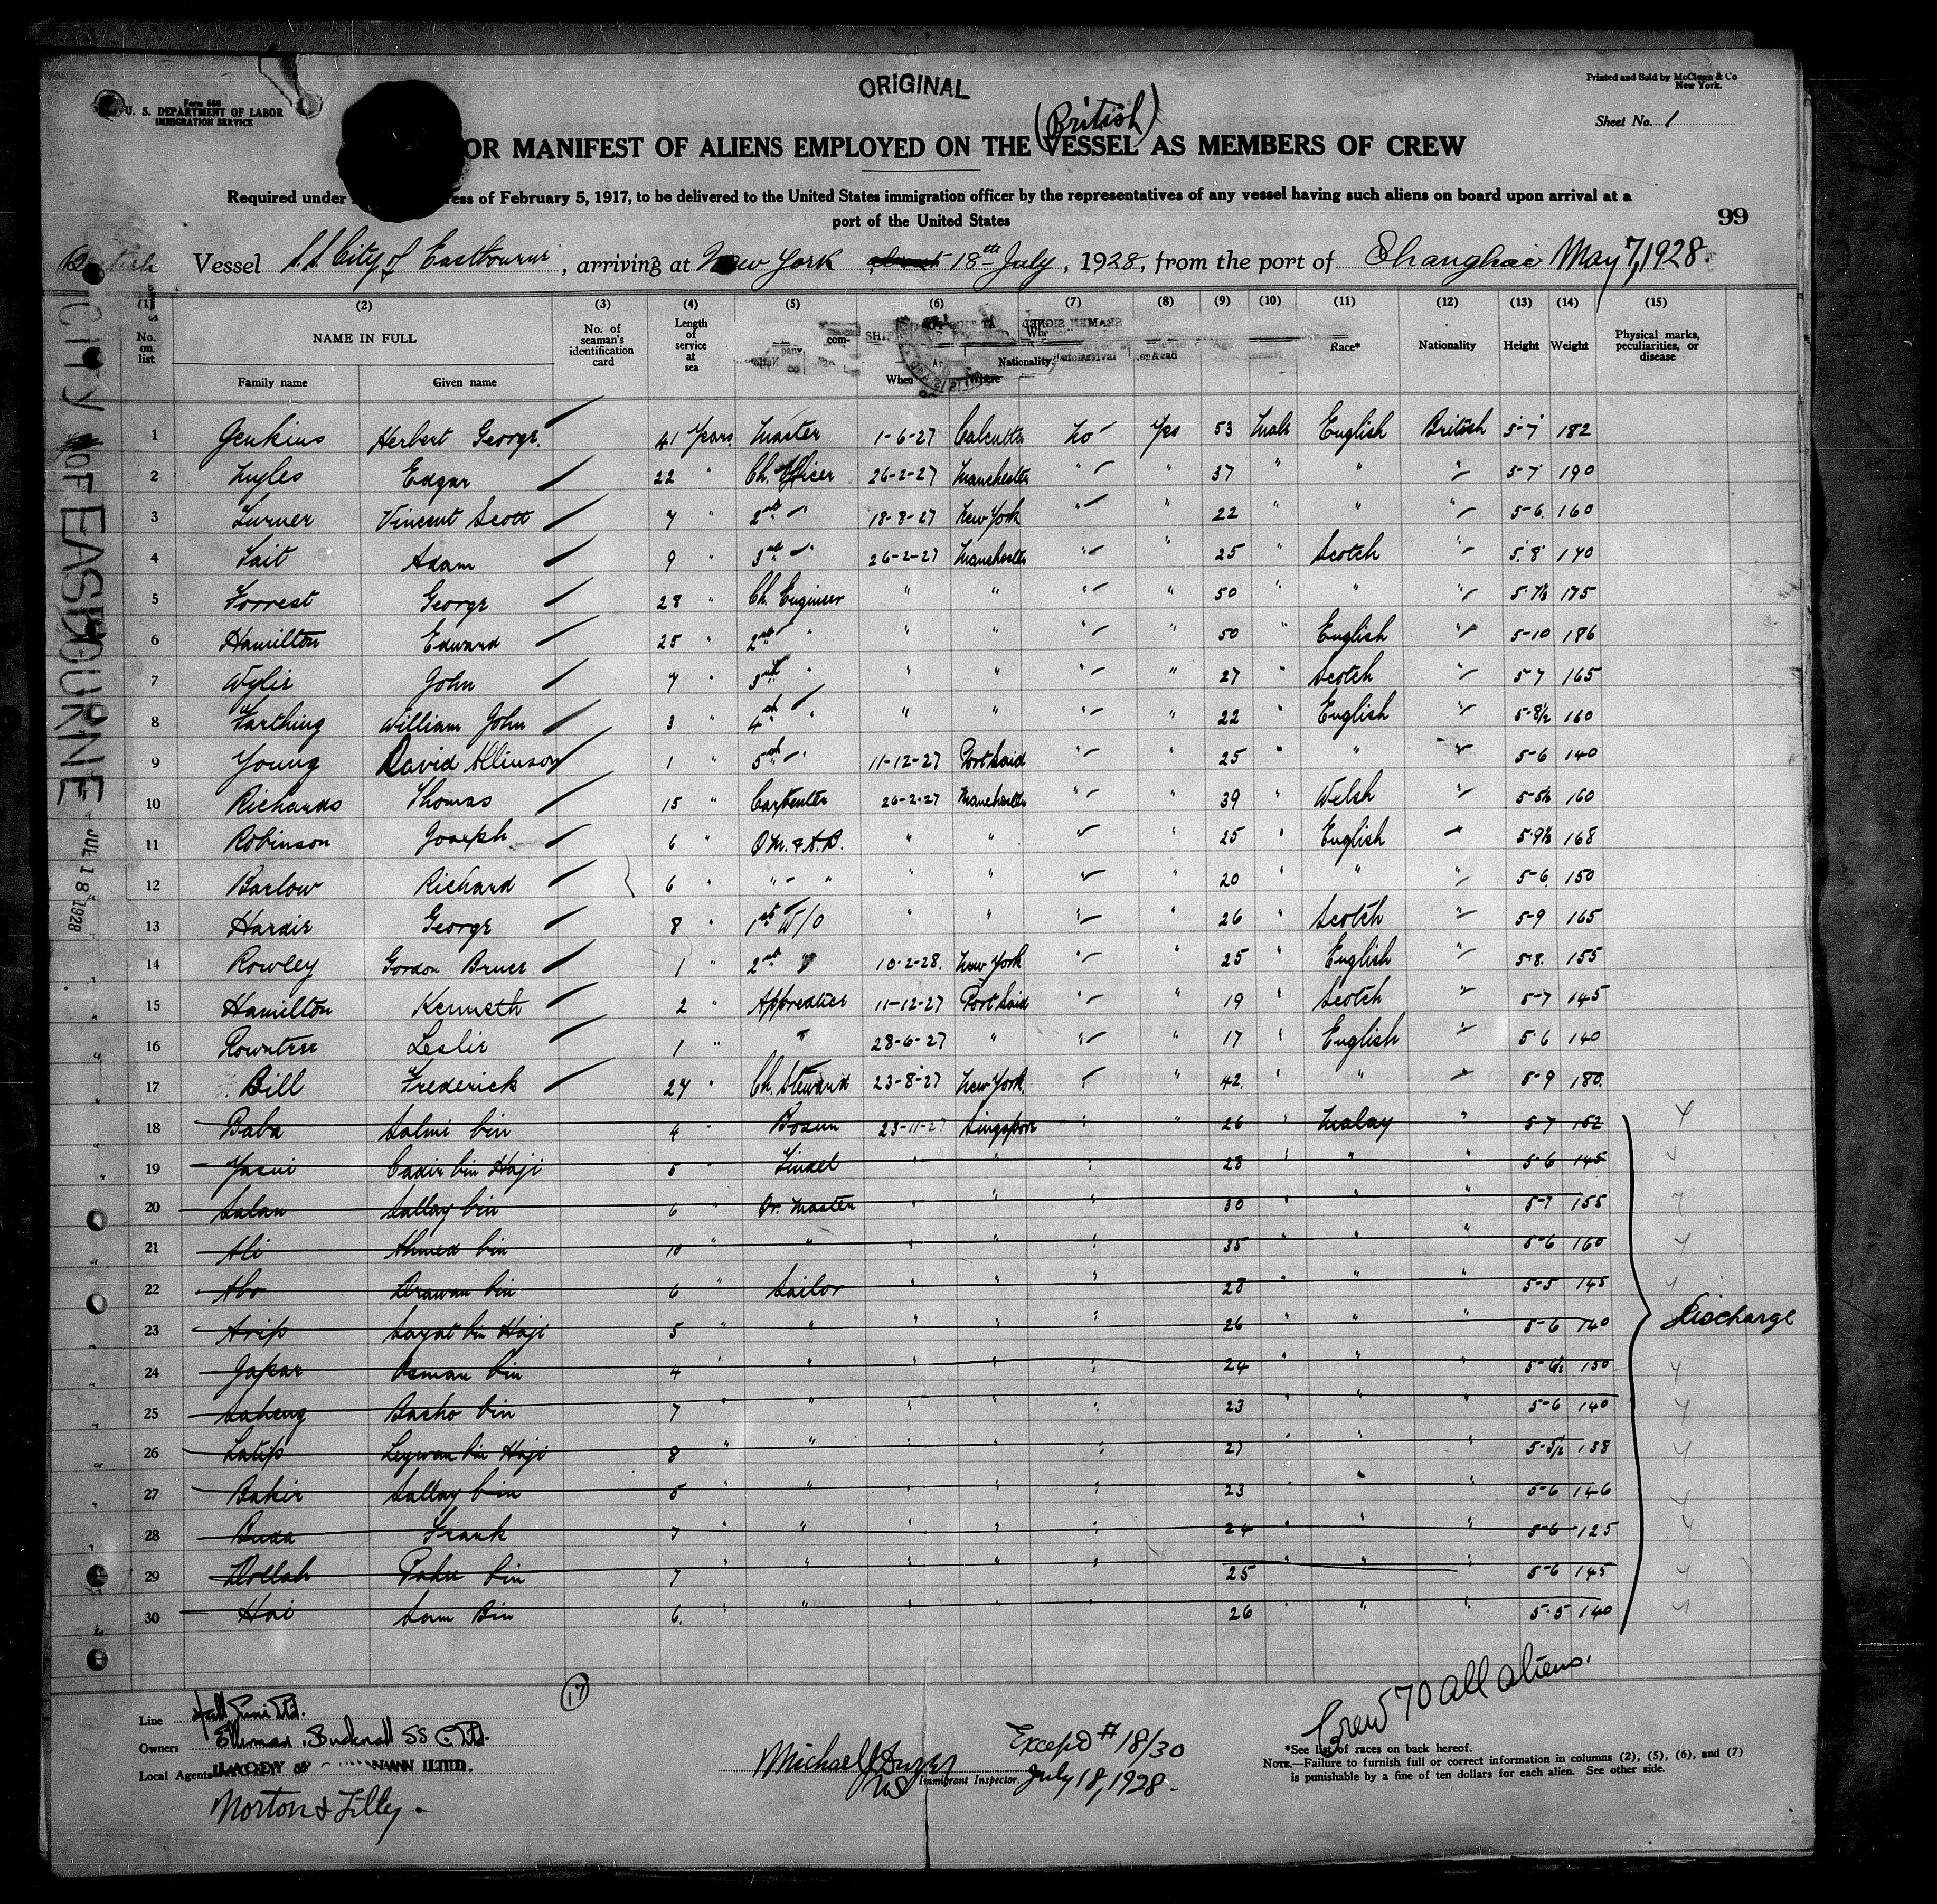 ORIGINAL
Printed and Sold by McClunn & Co
New York.
Form 680
U. S. DEPARTMENT OF LABOR
IMMIGRATION SERVICE
Sheet No. 1
(British)
OR MANIFEST OF ALIENS EMPLOYED ON THE VESSEL AS MEMBERS OF CREW
Required under ress of February 5, 1917, to be delivered to the United States immigration officer by the representatives of any vessel having such aliens on board upon arrival at a
port of the United States
99
British Vessel S.S. City of Eastbourne, arriving at New York 18th July, 1928, from the port of Shanghai May 7, 1928.
(1) (2) (3) (4) (5) (6) (7) (8) (9) (10) (11) (12) (13) (14) (15)
No. on list NAME IN FULL No. of seaman's identification card Length of service at sea Race* Nationality Height Weight Physical marks, peculiarities, or disease
Family name Given name When Where
1 Jenkins Herbert George. 41 Years. Master 1-6-27 Calcutta No Yes 53 Male English British 5-7 182
2 Myles Edgar 22 " Ch. Officer 26-2-27 Manchester " " 37 " " " 5-7 190
3 Turner Vincent Scott 7 " 2nd " 18-8-27 New York " " 22 " " " 5-6 160
4 Tait Adam 9 " 3rd " 26-2-27 Manchester " " 25 " Scotch " 5-8 140
5 Forrest George 28 " Ch. Engineer " " " " 50 " " " 5-7½ 175
6 Hamilton Edward 25 " 2nd " " " " " 50 " English " 5-10 186
7 Wylie John 7 " 3rd " " " " " 27 " Scotch " 5-7 165
8 Farthing William John 3 " 4th " " " " " 22 " English " 5-8½ 160
9 Young David Allinson 1 " 5th " 11-12-27 Port Said " " 25 " " " 5-6 140
10 Richards Thomas 15 " Carpenter 26-2-27 Manchester " " 39 " Welsh " 5-5½ 160
11 Robinson Joseph 6 " Q.M. & A.B. " " " " 25 " English " 5-9½ 168
12 Barlow Richard 6 " " - " " " " " 20 " " " 5-6 150
13 Hardie George 8 " 1st W/O " " " " 26 " Scotch " 5-9 165
14 Rowley Gordon Bruce 1 " 2nd " 10-2-28. New York " " 25 " English " 5-8. 155
15 Hamilton Kenneth 2 " Apprentice 11-12-27 Port Said " " 19 " Scotch " 5-7 145
16 Rowntree Leslie 1 " " 28-6-27 " " " 17 " English " 5-6 140
17 Bill Frederick 24 " Ch. Steward 23-8-27 New York. " " 42. " " " 5-9 180.
18 Baba Salmi bin 4 " Bosun 23-11-27 Singapore " " 26 " Malay " 5-7 152
19 Yasin Cadir bin Haji 5 " Tindel " " " 28 " " " 5-6 145
20 Salan Sallay bin 6 " Qr. Master " " " 30 " " " 5-7 155
21 Ali Ahmed bin 10 " " " " " 35 " " " 5-6 160
22 Abo Drawan bin 6 " Sailor " " " 28 " " " 5-5 145
23 Arip Sayat bin Haji 5 " " " " " 26 " " " 5-6 140
24 Japar Osman bin 4 " " " " " 24 " " " 5-6½ 150
25 Saheng Bacho bin 7 " " " " " 23 " " " 5-6 140
26 Latip Leywan bin Haji 8 " " " " " 27 " " " 5-5½ 138
27 Bakir Sallay bin 5 " " " " " 23 " " " 5-6 146
28 Buda Frank 7 " " " " " 24 " " " 5-6 125
29 Dollah Pahu bin 7 " " " " " 25 " " " 5-6 145
30 Hai Sam Bin 6. " " " " " 26 " " " 5-5 140
Discharge
CITY OF EASTBOURNE JUL 18 1928
17
Crew 70 all aliens.
Line
Owners Ellerman Bucknall SS Co. Ltd.
Local Agents
Norton & Lilly.
Michael J
Immigrant Inspector.
Except # 18/30
July 18, 1928
*See list of races on back hereof.
NOTE.—Failure to furnish full or correct information in columns (2), (5), (6), and (7)
is punishable by a fine of ten dollars for each alien. See other side.